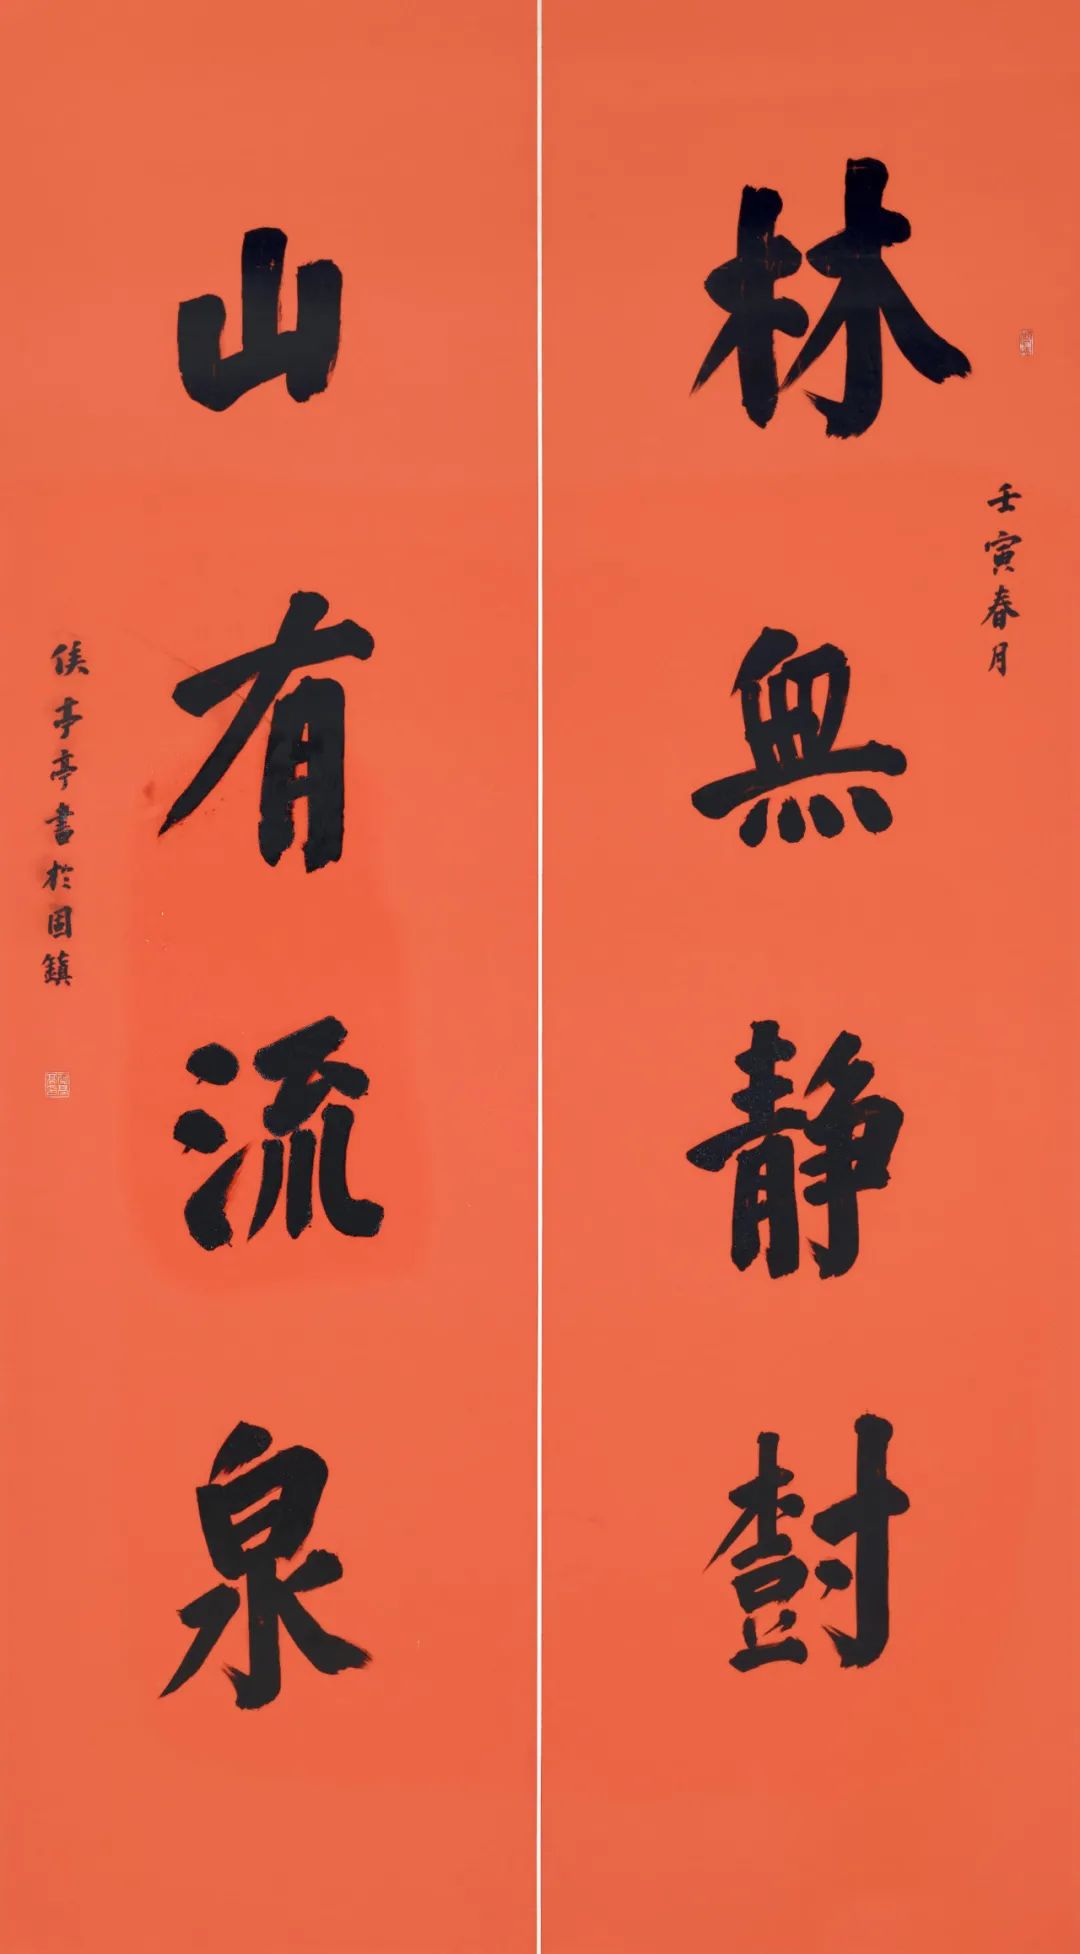 壬寅春月
林無静樹
山有流泉
侯亭亭書於固鎮